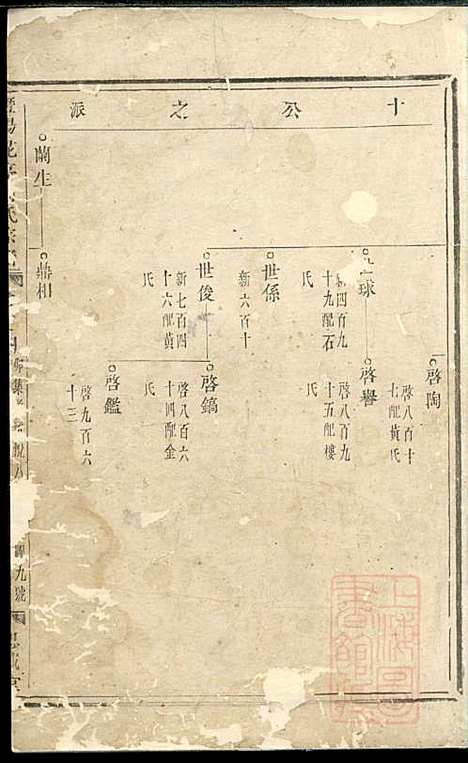 十公之派
啓陶
啓八百十
七配黃氏
球
新四百九
十九配石
氏
啓譽
啓八百九
十五配樓
氏
世係
新六百十
世俊
新七百四
十六配黃
氏
啓鎬
啓八百六
十四配金
氏
啓鑑
啓九百六
十三
蘭生
鼎相
九號
上海圖書館藏